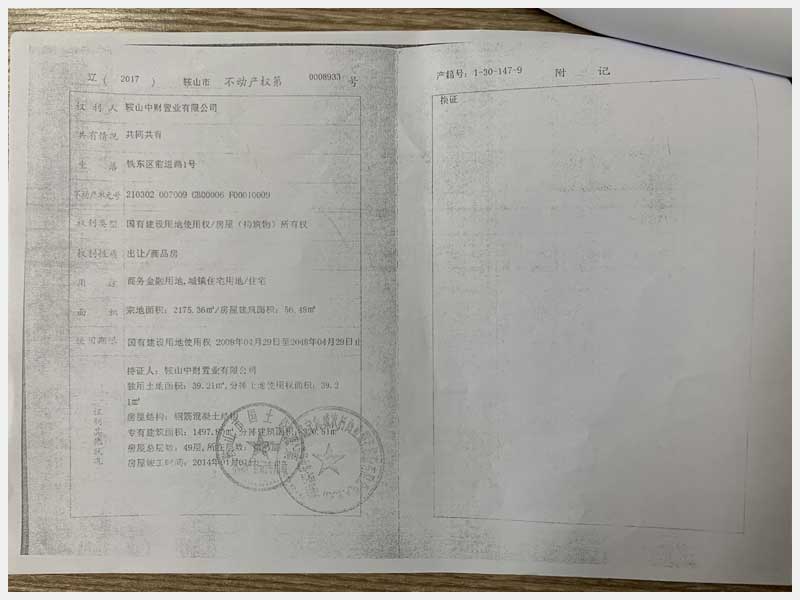 辽( 2017 ) 鞍山市 不动产权第 0008933 号
权利人 鞍山中财置业有限公司
共有情况 共同共有
坐落 铁东区前进路1号
不动产单元号 210302 007009 GB00006 F00010009
权利类型 国有建设用地使用权/房屋(构筑物)所有权
权利性质 出让/商品房
用途 商务金融用地,城镇住宅用地/住宅
面积 宗地面积: 2175.36㎡/房屋建筑面积: 56.49㎡
使用期限 国有建设用地使用权 2009年04月29日至2049年04月29日止
权利其他状况
持证人: 鞍山中财置业有限公司
独用土地面积: 39.21㎡,分摊土地使用权面积: 39.2
1㎡
房屋结构: 钢筋混凝土结构
专有建筑面积: 1497.
分摊建筑面积:
房屋总层数: 49层,所在层数:
房屋竣工时间: 2014年01月
产籍号: 1-30-147-9
附 记
换证